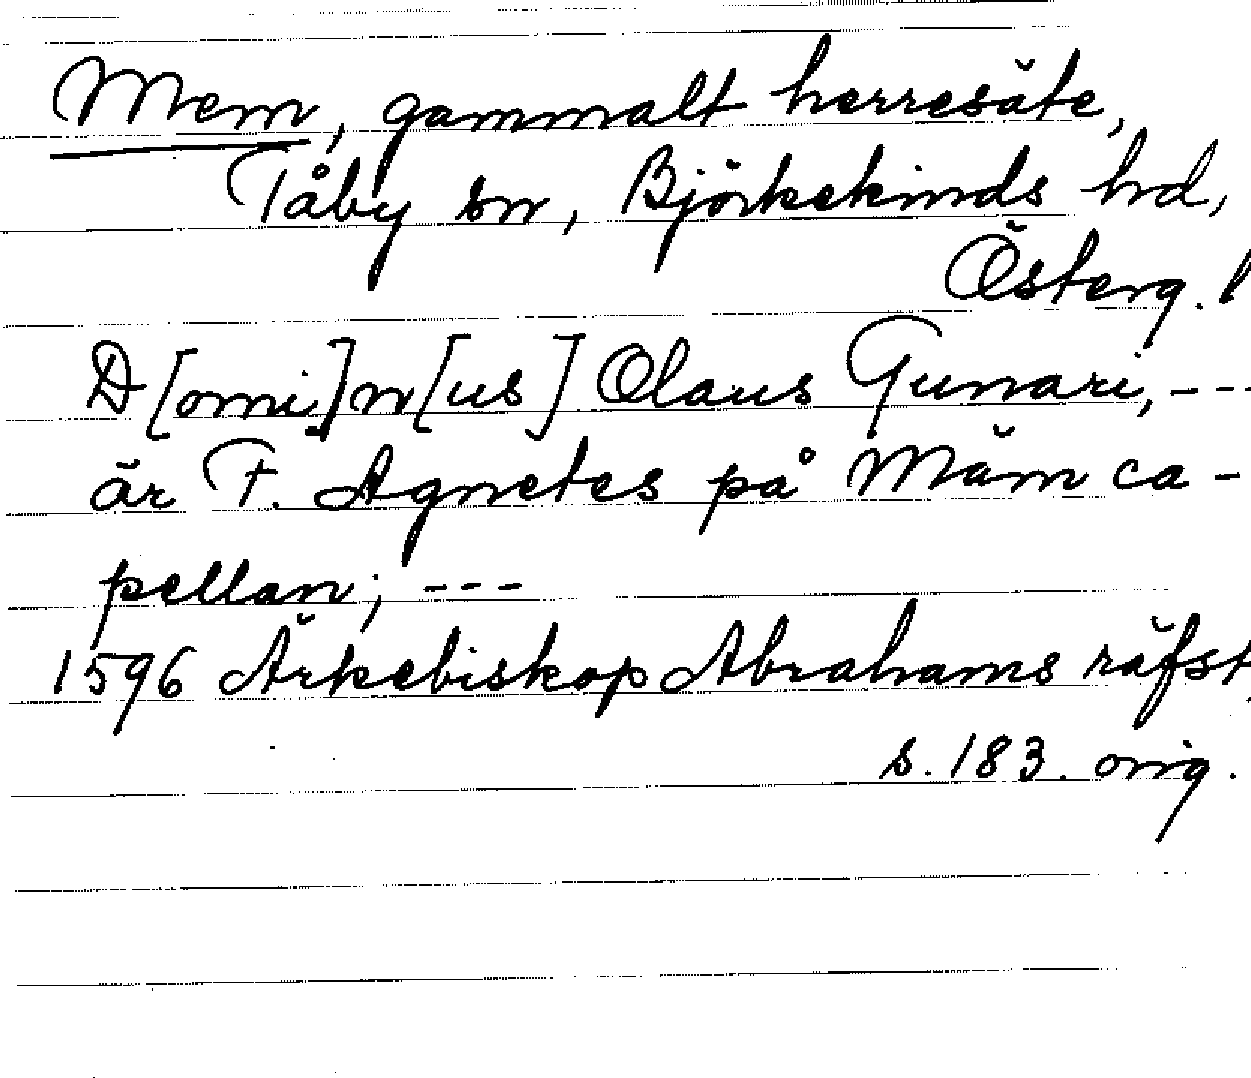 Mem, gammalt herresäte,
Tåby sn, Björkekinds hd,
Österg. l
D[omi]n[us] Olaus Gunnari, ---
är F. Agnetes på Mäm ca-
pellan; ---
1596 Ärkebiskop Abrahams räfst
s. 183. orig.